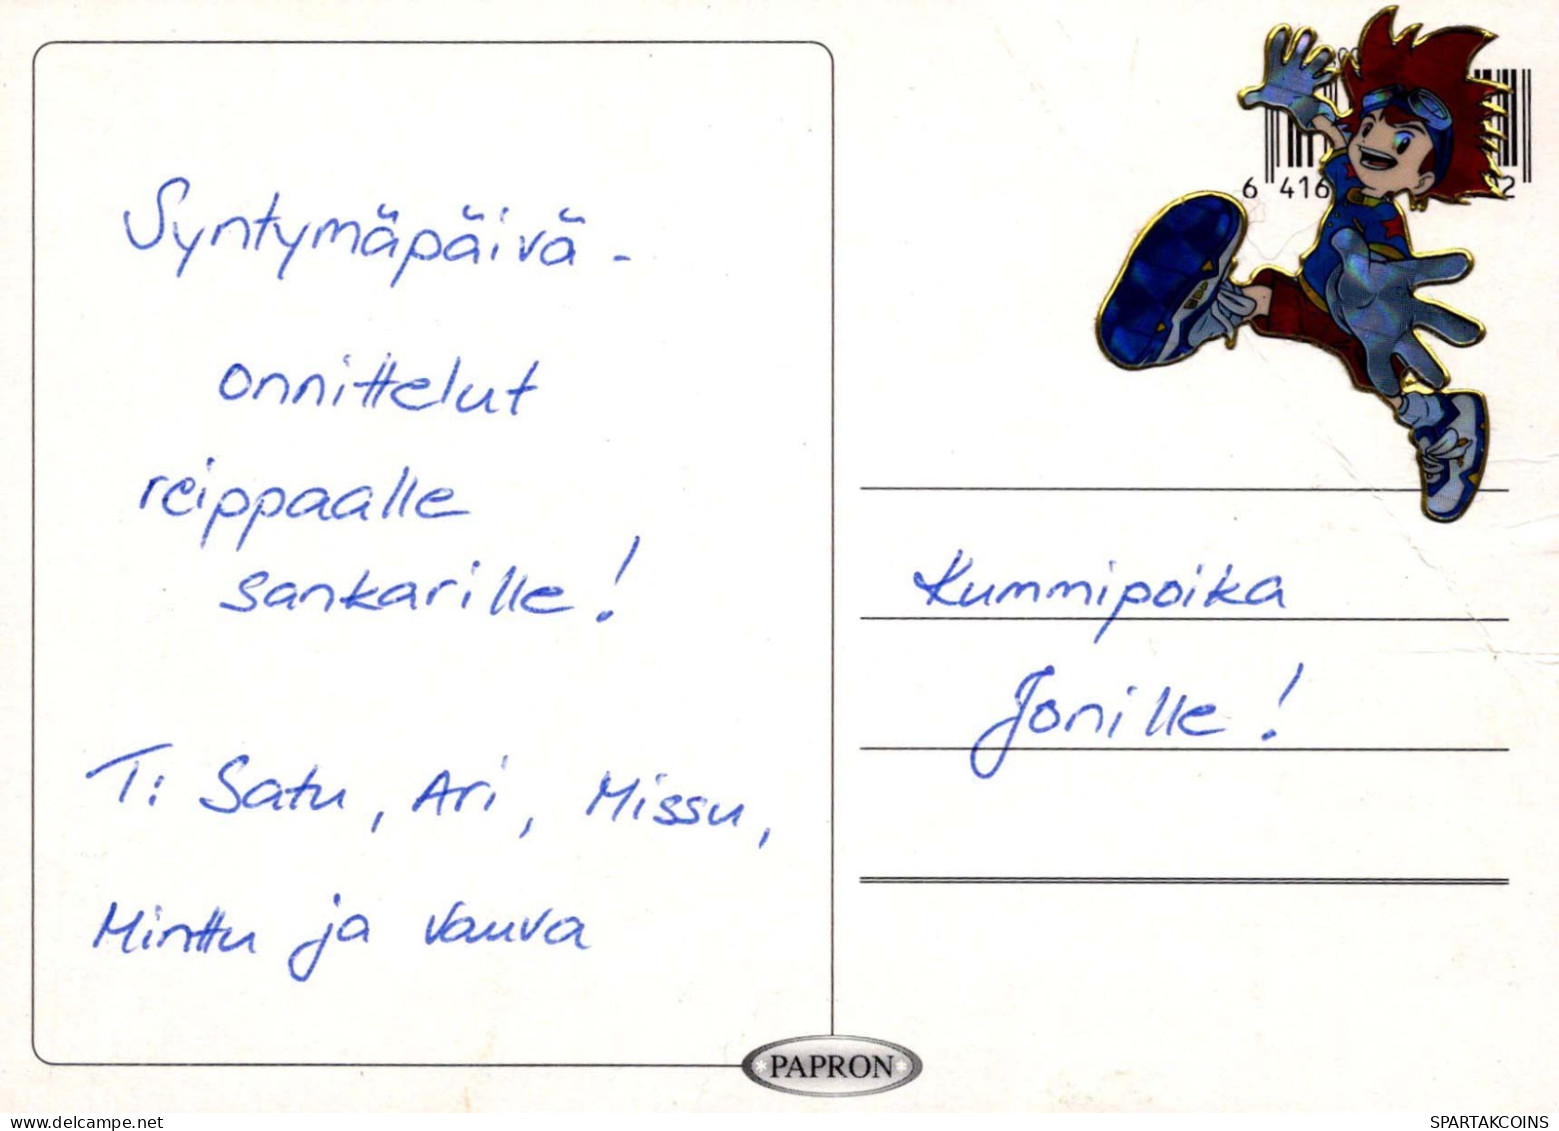 Syntymäpäivä-
onnittelut
reippaalle
sankarille!
T: Satu, Ari, Missu,
Minttu ja vauva
6 416
2
Kummipoika
Jonille!
PAPRON
delcampe.net
SPARTAKCOINS